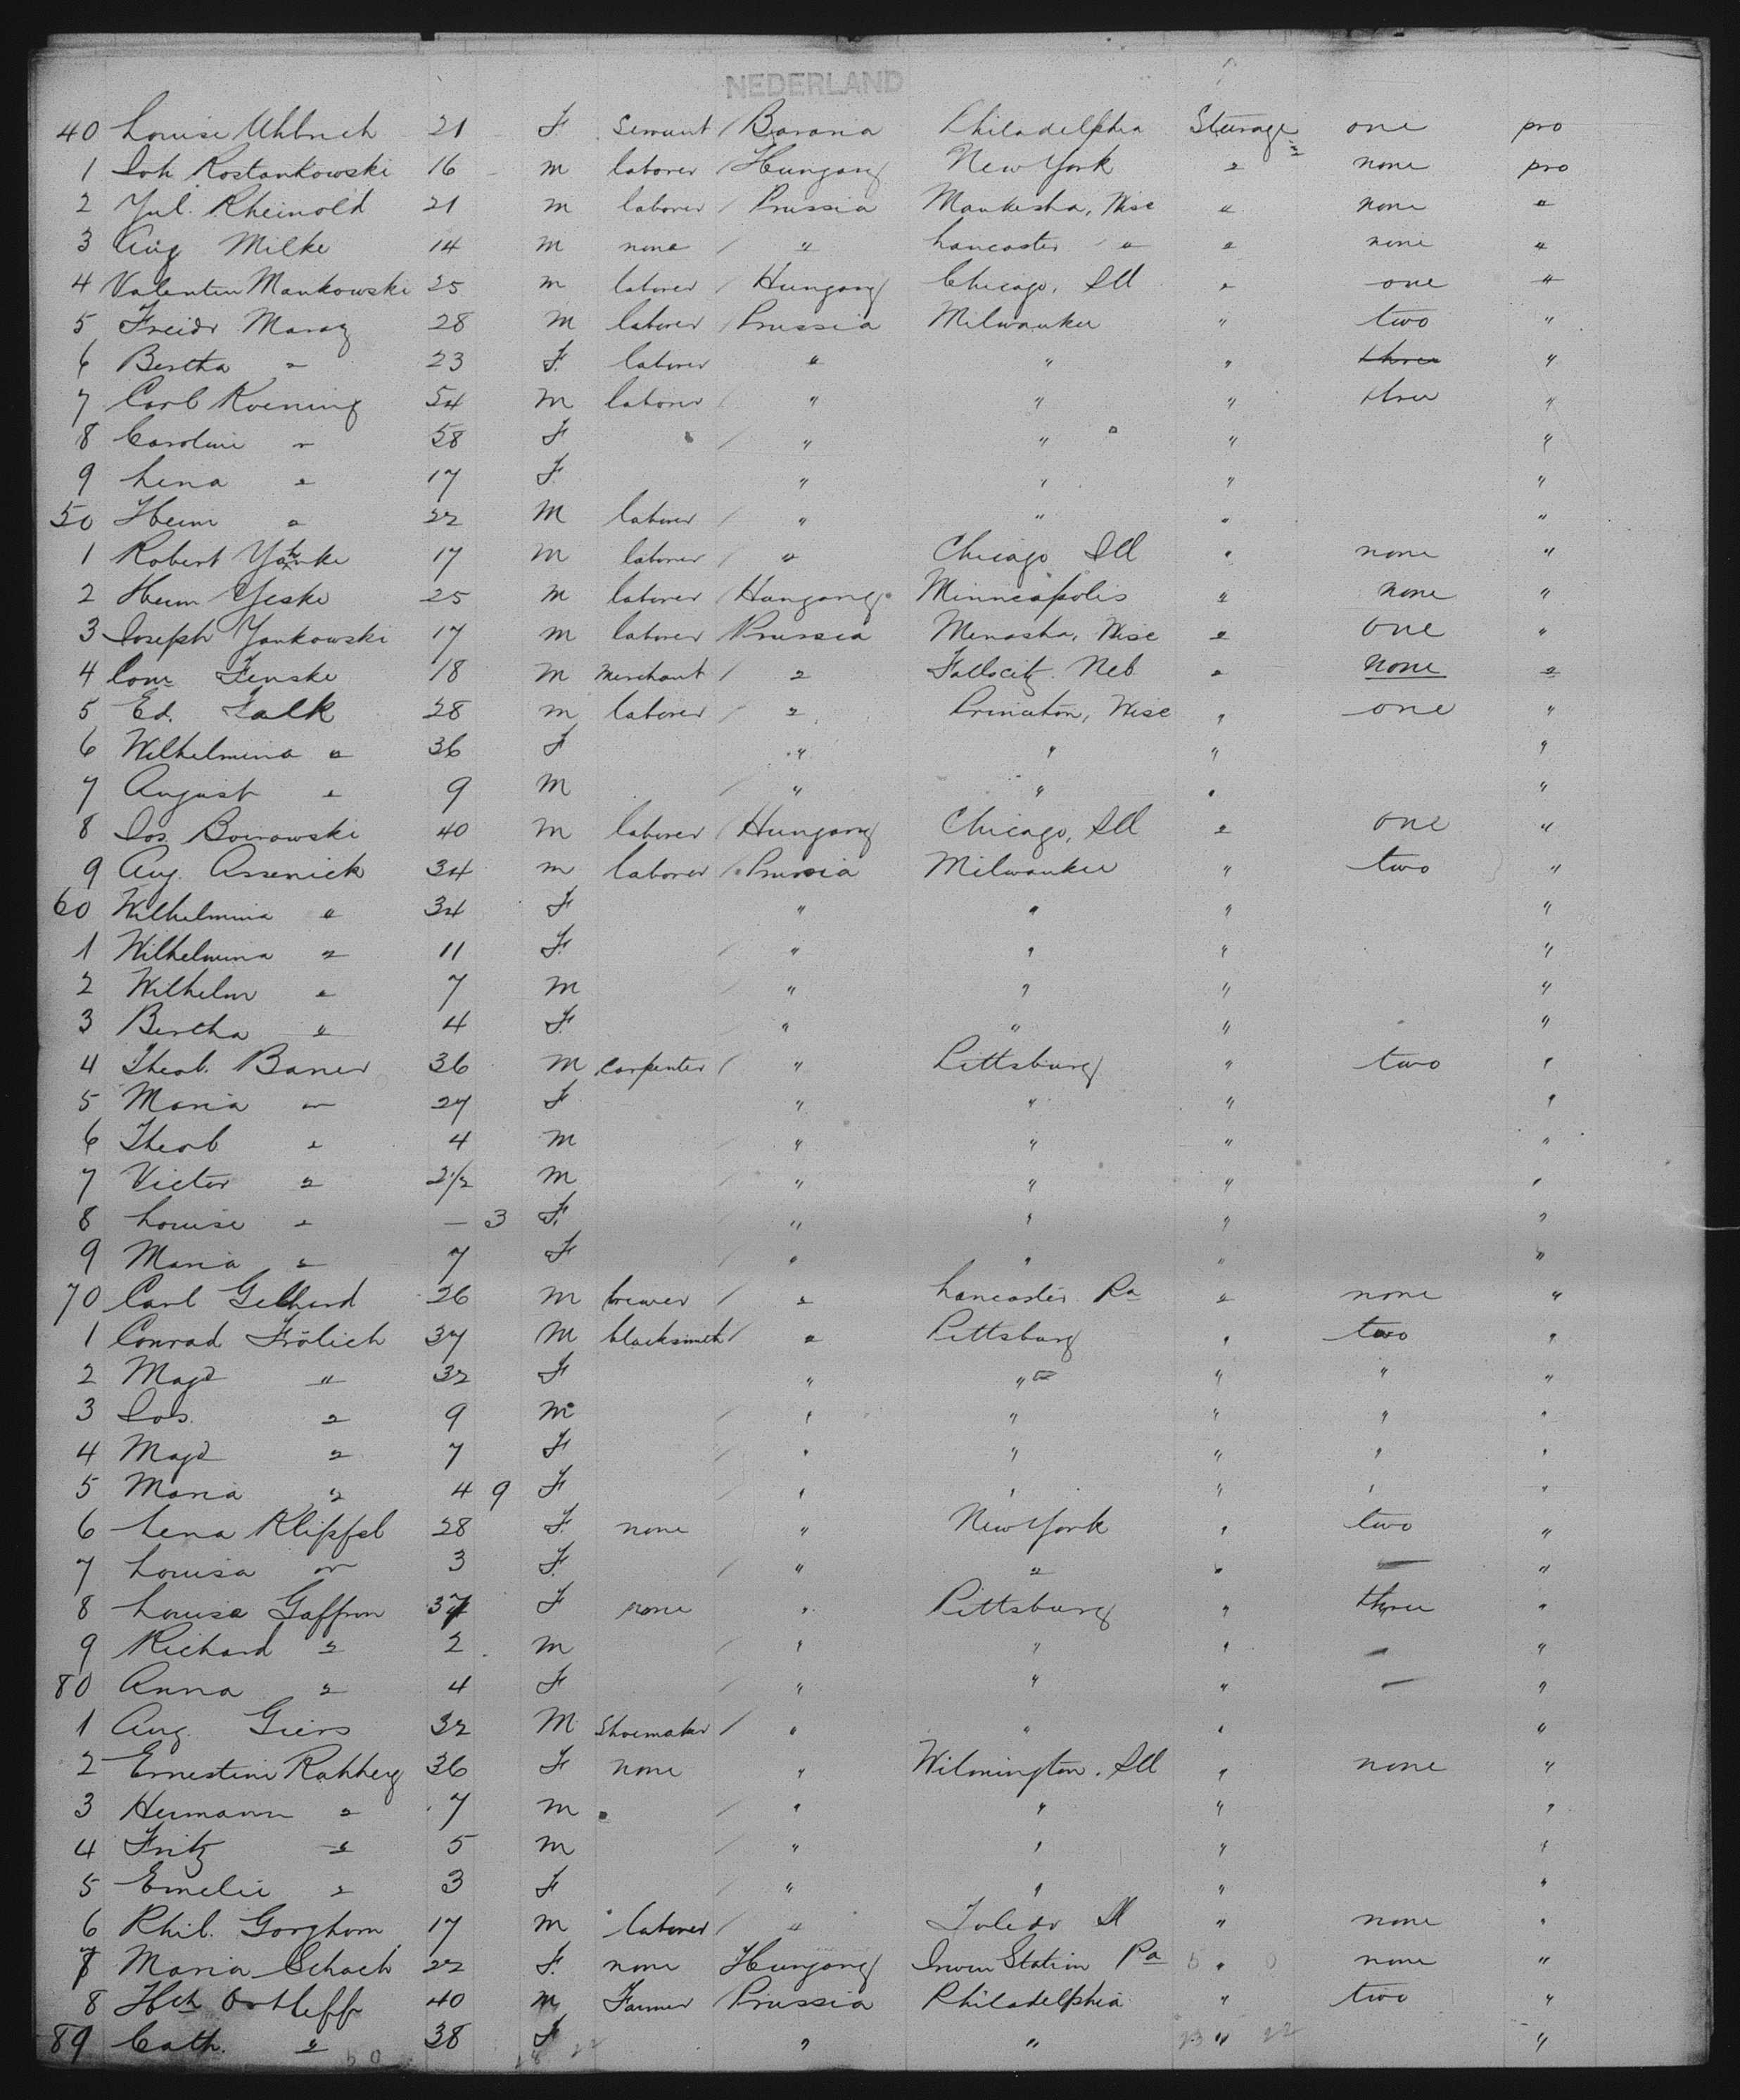 NEDERLAND
40 Louise Uhlrich 21 F Servant / Bavaria Philadelphia Steerage one pro
1 Joh Rostankowski 16 m laborer / Hungary New York " none pro
2 Jul. Rheinold 21 m laborer / Prussia Waukesha, Wisc " none "
3 Aug Milke 14 m none / " Lancaster " " none "
4 Valentin Mankowski 25 m laborer / Hungary Chicago, Ill " one "
5 Freidr 28 M laborer / Prussia Milwaukee " two "
6 Bertha " 23 F. laborer " " " three "
7 Carl Koening 54 m laborer / " " " three "
8 Caroline " 58 F / " " " "
9 Lena " 17 F " " " "
50 Heinr " 22 M laborer / " " " "
1 Robert 17 m laborer / " Chicago Ill " none "
2 Heinr Yeske 25 m laborer / Hungary Minneapolis " none "
3 Joseph Yankowski 17 m laborer / Prussia Menasha, Wisc " one "
4 Fenske 18 m Merchant / " Fallscity. Neb " none "
5 Ed. Falk 28 m laborer / " Princeton, Wisc " one "
6 Wilhelmina " 36 F " " " "
7 August " 9 M / " " " "
8 Jos 40 m laborer / Hungary Chicago, Ill " one "
9 Aug. Arsenick 34 m laborer / Prussia Milwaukee " two "
60 Wilhelmina " 34 F " " " "
1 Wilhelmina " 11 F. / " " " "
2 Wilhelm " 7 m / " " " "
3 Bertha " 4 F. " " " "
4 Theob. Baner 36 M carpenter / " Pittsburg " two "
5 Maria " 27 F " " " "
6 Theob " 4 m " " " "
7 Victor " 2 1/2 m " " " "
8 Louise " — 3 F. / " " " "
9 Maria " 7 F / " " " "
70 Carl Gebhard 26 m brewer / " Lancaster Pa " none "
1 Conrad Frölich 37 M blacksmith / " Pittsburg " two "
2 Magd " 32 F " " " " "
3 Jos. " 9 m / " " " " "
4 Magd " 7 F / " " " " "
5 Maria " 4 9 F / " " " " "
6 Lena Klipfel 28 F. none " New York " two "
7 Louisa " 3 F. / " " " — "
8 Louise Gaffron 37 F none " Pittsburg " three "
9 Richard " 2 m / " " " - "
80 Anna " 4 F / " " " - "
1 Aug. Giers 32 M Shoemaker / " " " "
2 Ernestine 36 F none " Wilmington. Ill " none "
3 Hermann " 7 m / " " " "
4 Fritz " 5 m / " " " "
5 Emelie " 3 F / " " " "
6 Phil. 17 m laborer / " Toledo " none "
7 Maria Schach 22 F. none Hungary Irwin Station Pa " none "
8 Hch Ostleff 40 m Farmer Prussia Philadelphia " two "
89 Cath. " 38 F " " " "